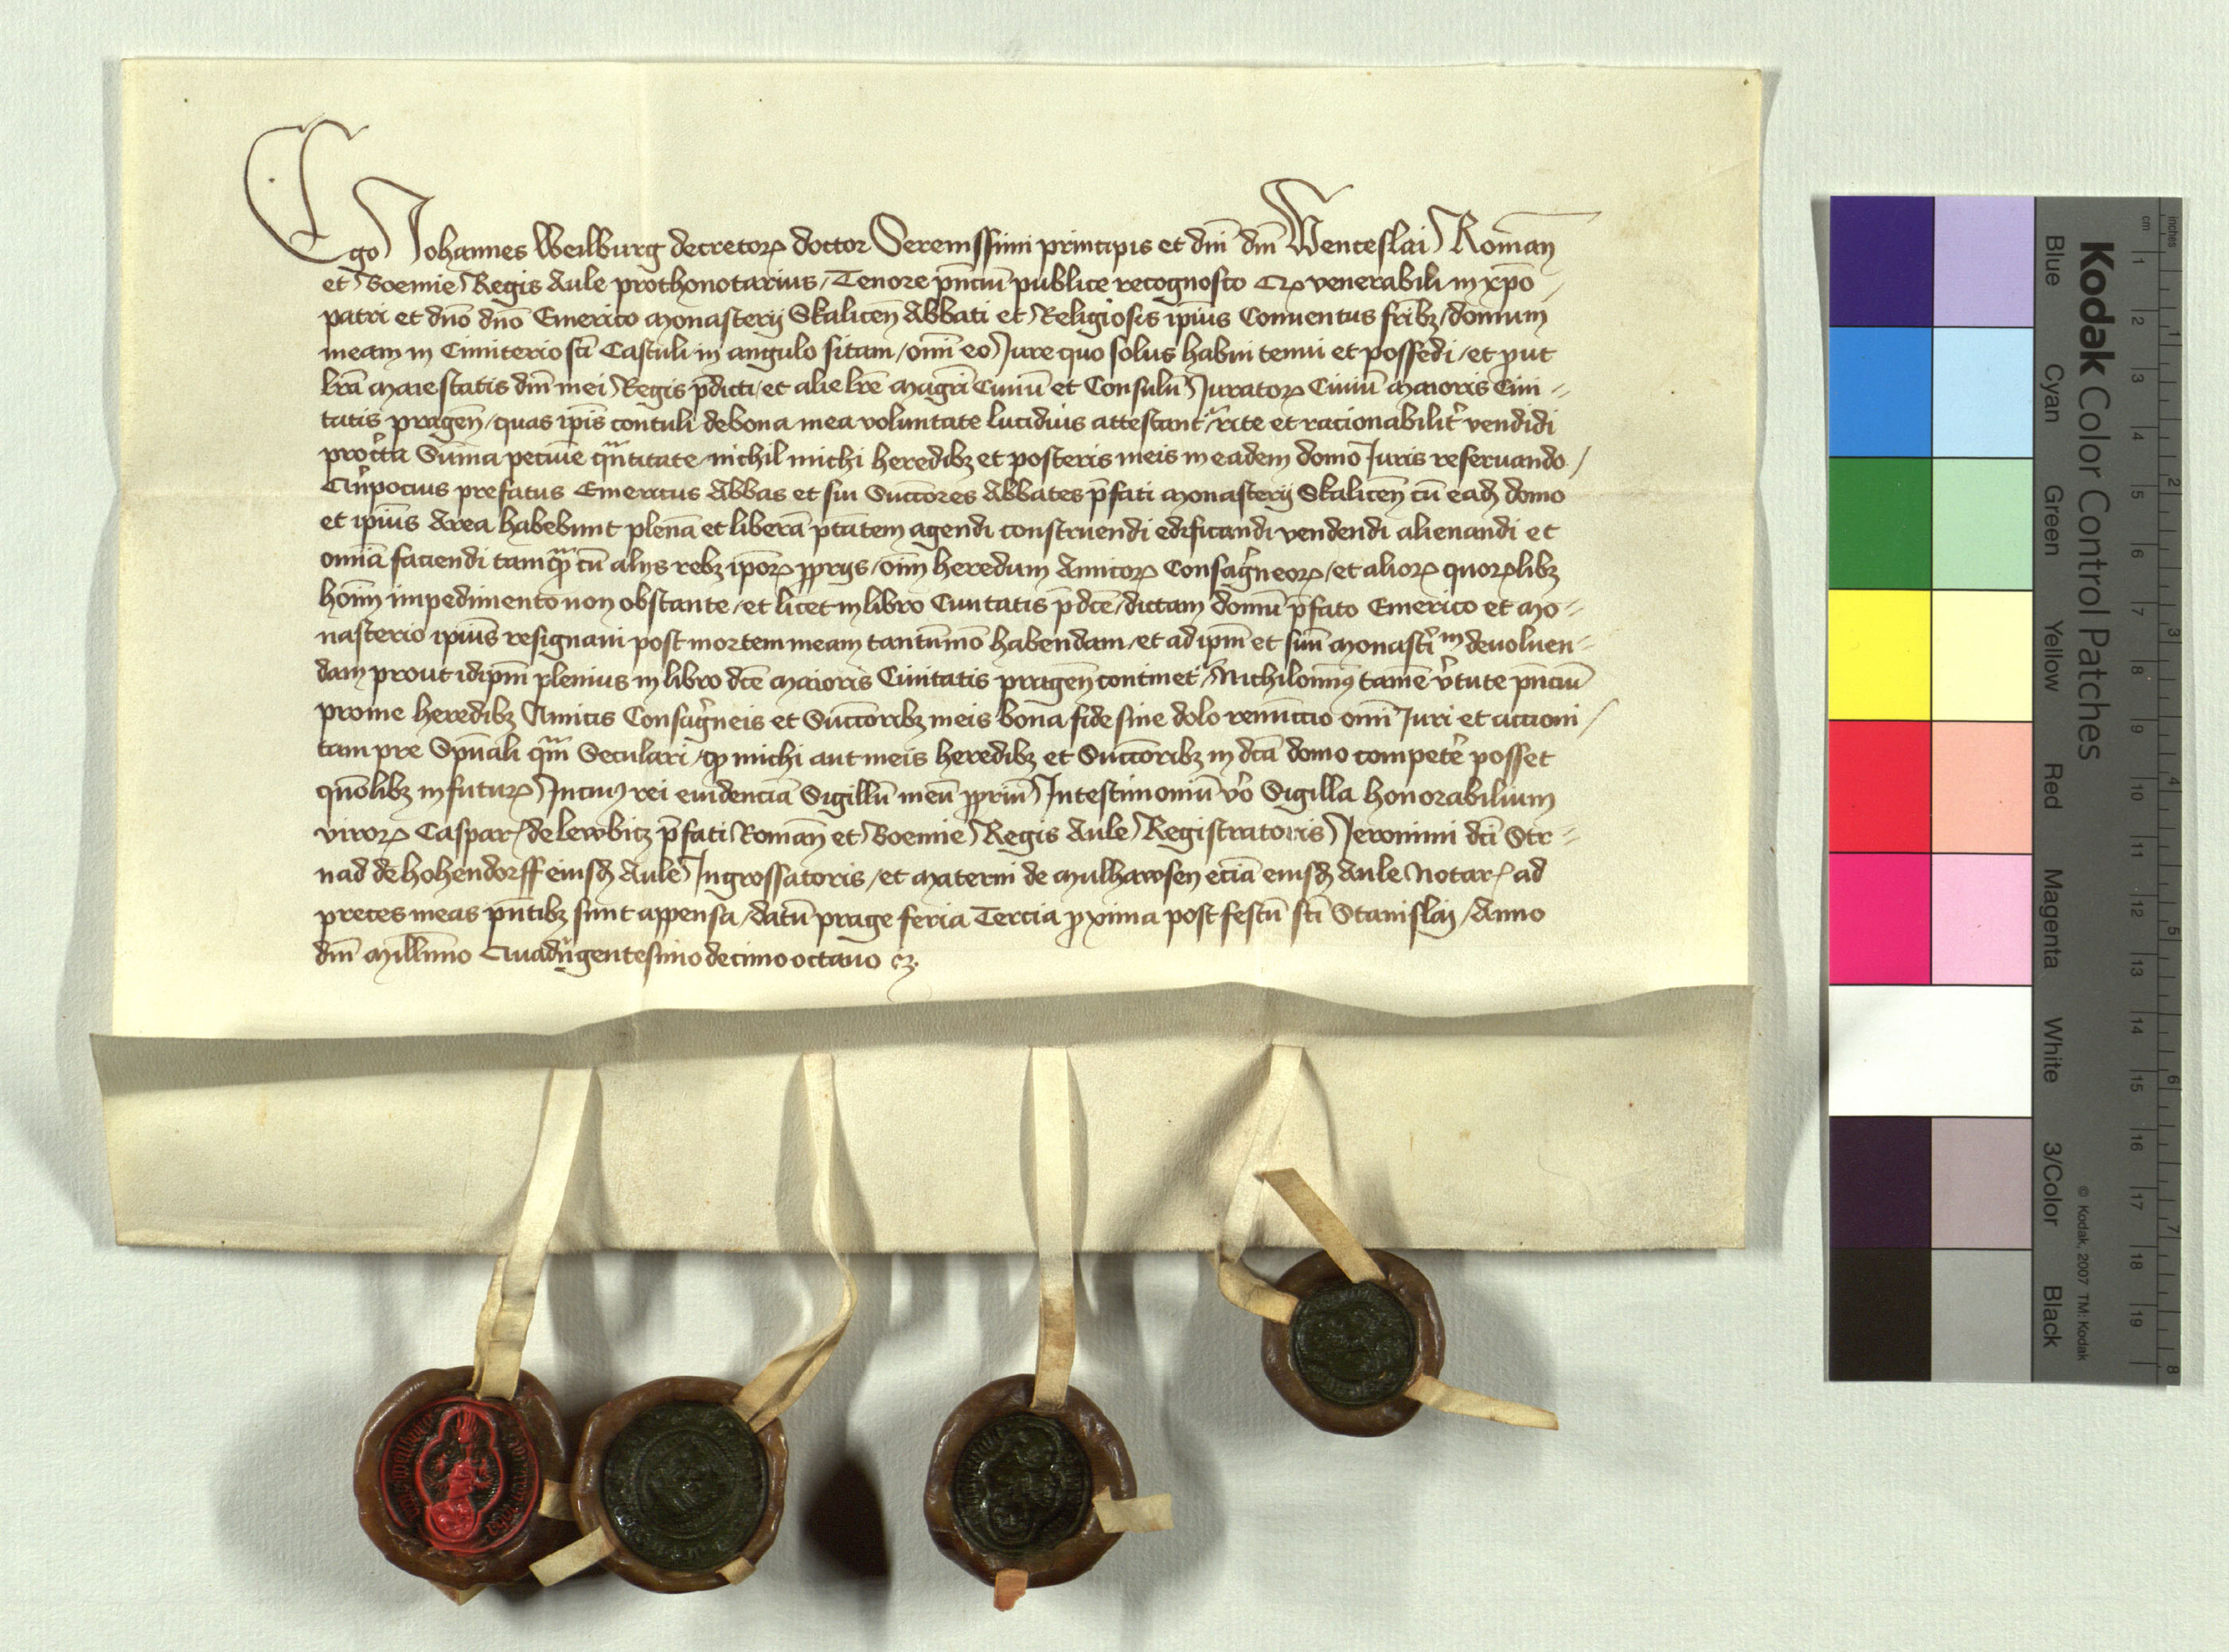 Ego Johannes Weilburg decretoꝝ doctor Serenissimi principis et dn̄i dn̄i Wenceslai Roman̄
et Boemie Regis Aule prothonotarius / Tenore pn̄ciū publice recognosco Qꝫ venerabili in xp̄o
patri et dn̄o dn̄o Emerico Monasterij Skalicen̄ Abbati et Religiosis ip̄ius Conuentus fr̄ibꝫ / domum
meam in Cimiterio sc̄i Castuli in angulo sitam / om̄i eo Jure quo solus habui tenui et possedi / et put
lr̄a Maiestatis dn̄i mei Regis p̄dicti / et alie lr̄e Magr̄i Ciuiū et Consulū Juratoꝝ Ciuiū Maioris Ciui-
tatis pragen̄ / quas ip̄is contuli de bona mea voluntate lucidius attestant᷑ / rite et racionabilit̓ vendidi
pro c̓ta Sūma pecunie qᷓntitate nichil michi heredibꝫ et posteris meis in eadem domo Juris reseruando /
Quīpocius prefatus Emericus Abbas et sui Succ̄ores Abbates p̄fati Monasterij Skalicen̄ cū eadꝫ domo
et ip̄ius Area habebunt plenā et liberā ptāt̄em agendi construendi edificandi vendendi alienandi et
om̄ia faciendi tamqᷓ cū alijs rebꝫ ip̄oꝝ ꝓprijs / oīm heredum Amicoꝝ Consag̓neoꝝ / et alioꝝ quoꝝlibꝫ
hoīm impedimento non obstante / et licet in libro Ciuitatis p̄dc̄e / dictam domū p̄fato Emerico et Mo-
nasterio ip̄ius resignaui post mortem meam tantūmō habendam / et ad ip̄m et suū Monast̓im deuoluen-
dam prout idip̄m plenius in libro dc̄e Maioris Ciuitatis pragen̄ continet᷑ / Nichilominꝰ tamē v̓tute pn̄ciū
pro me heredibꝫ Amicis Consag̓neis et Succ̄oribꝫ meis bona fide sine dolo renūccio om̄i Juri et accioni /
tam pre Spūali qᷓm Seculari / qꝫ michi aut meis heredibꝫ et Succ̄oribꝫ in dc̄a domo compet̓e posset
quōlibꝫ in futuꝝ Jn cuiꝰ rei euidenciā Sigillū meū ꝓpriū Jn testimoniū v̓o Sigilla honorabilium
viroꝝ Caspar̄ de lewbicz p̄fati Roman̄ et Boemie Regis Aule Registratoris Jeronimi dc̄i Str-
nad de hohendorff eiusdꝫ Aule Jngrossatoris / et Materni de Mulhawsen eciā eiusdꝫ Aule Notar̄ ad
preces meas pn̄tibꝫ sunt appensa / datū prage feria Tercia ꝓxima post festū sc̄i Stanislaj / Anno
dn̄i Mill̄imo Quadringentesimo decimo octauo ꝛꝫ.
Kodak Color Control Patches
Blue Cyan Green Yellow Red Magenta White 3/Color Black
© Kodak, 2007 TM: Kodak
inches 1 2 3 4 5 6 7 8
cm 1 2 3 4 5 6 7 8 9 10 11 12 13 14 15 16 17 18 19